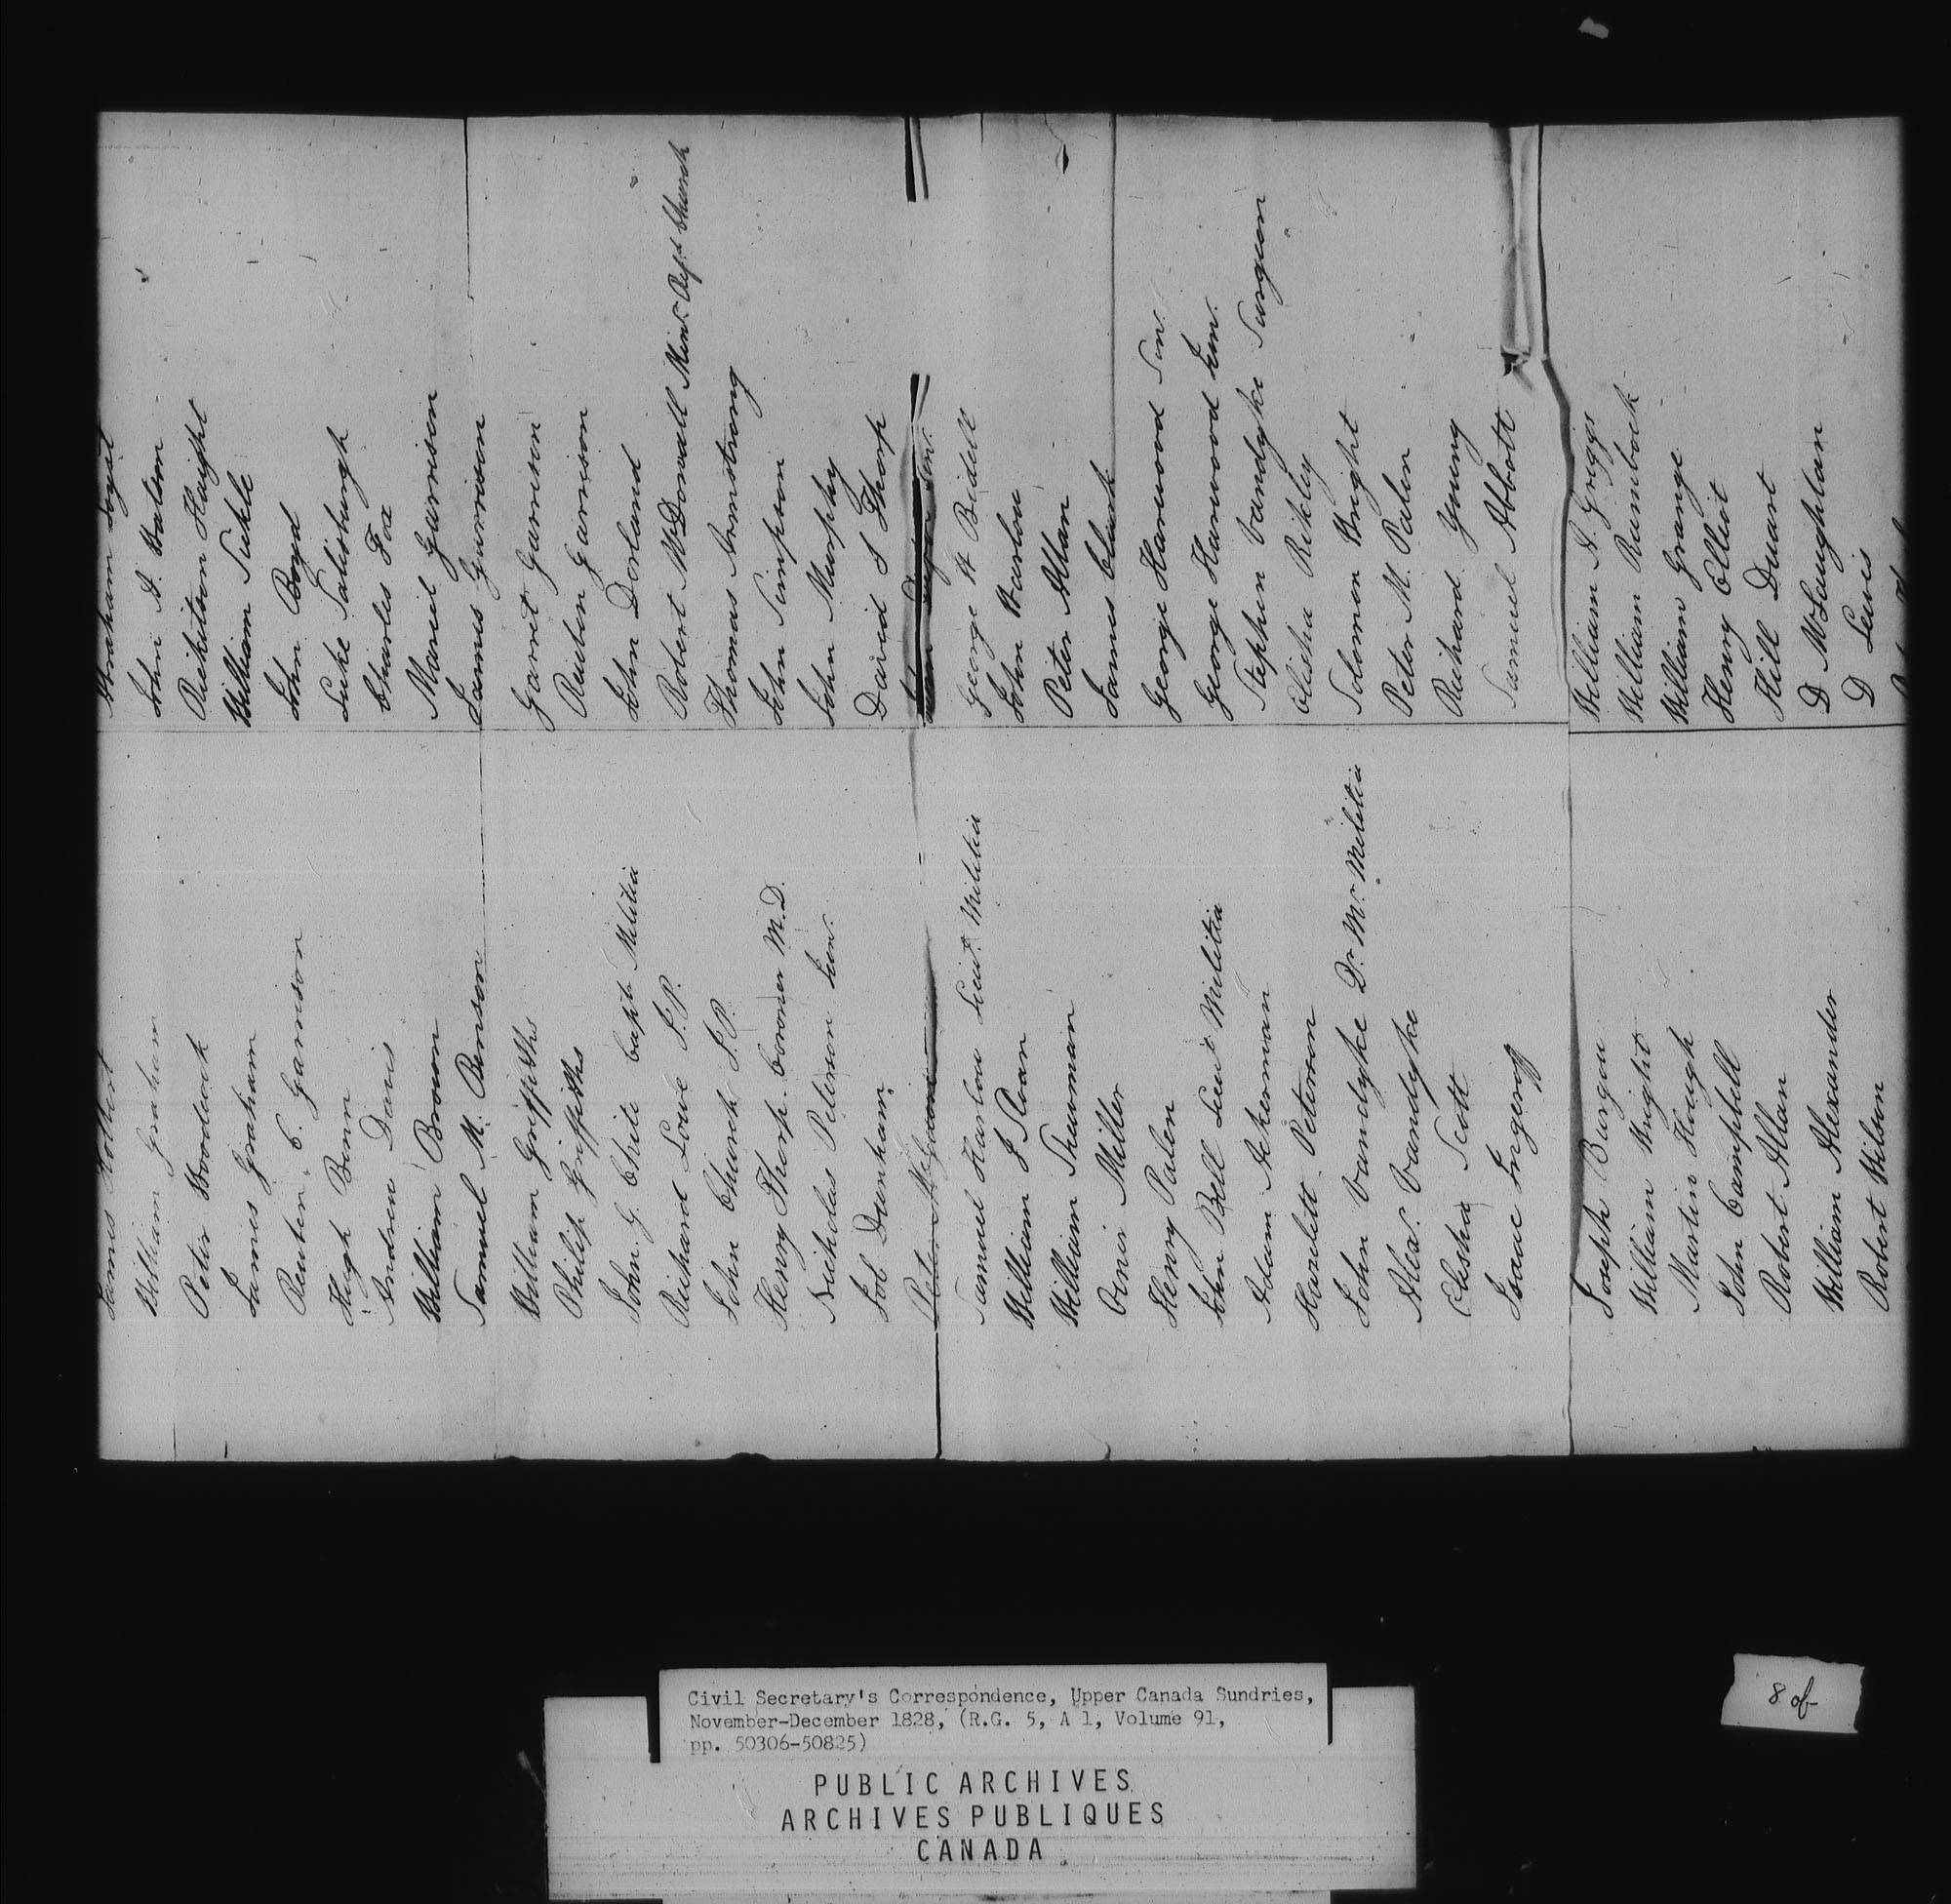 James
William Graham
Peter Woodcock
James Graham
Reuben C. Garrison
Hugh Benn
Andrew Davis
William Brown
Samuel M. Benson
William Griffiths
Philip Griffiths
John G. Chite Capt Militia
Richard Lowe J.P.
John Church J.P.
Henry Thorp Coroner M.D.
Nicholas Peterson Jun.
Job Dunham
Peter
Samuel Harlow Lieut. Militia
William J Roan
William Shurman
Miller
Henry Palen
John Bell Lieut Militia
Adam Akerman
Hazelett Peterson
John Vandyke Dr. Mr. Militia
Alexr. Vandyke
Elisha Scott
Isaac Ingeroff
Joseph Burgen
William Wright
Martin Hough
John Campbell
Robert Allan
William Alexander
Robert Wilson
Abraham
John A. Palen
Richitson Haight
William Sickle
John Boyd
Luke Salisburgh
Charles Fox
Marvil Garrison
James Garrison
Garret Garrison
Reuben Garrison
John Dorland
Robert McDowall Minr. Church
Thomas Armstrong
John Simpson
John Murphy
David S Thorp
Senr.
George H Bidell
John Harlow
Peter Allan
James Clark
George Harwood Sen.
George Harwood Jun.
Stephen Vandyke Surgeon
Elisha Rikley
Solomon Wright
Peter M. Palen
Richard Young
Samuel Abbott
William A. Griggs
William Rumbock
William Grange
Henry Elliot
Hill Duart
D McLaughlan
D Lewis
Civil Secretary's Correspondence, Upper Canada Sundries,
November-December 1828, (R.G. 5, A 1, Volume 91,
pp. 50306-50825)
PUBLIC ARCHIVES
ARCHIVES PUBLIQUES
CANADA
8 of